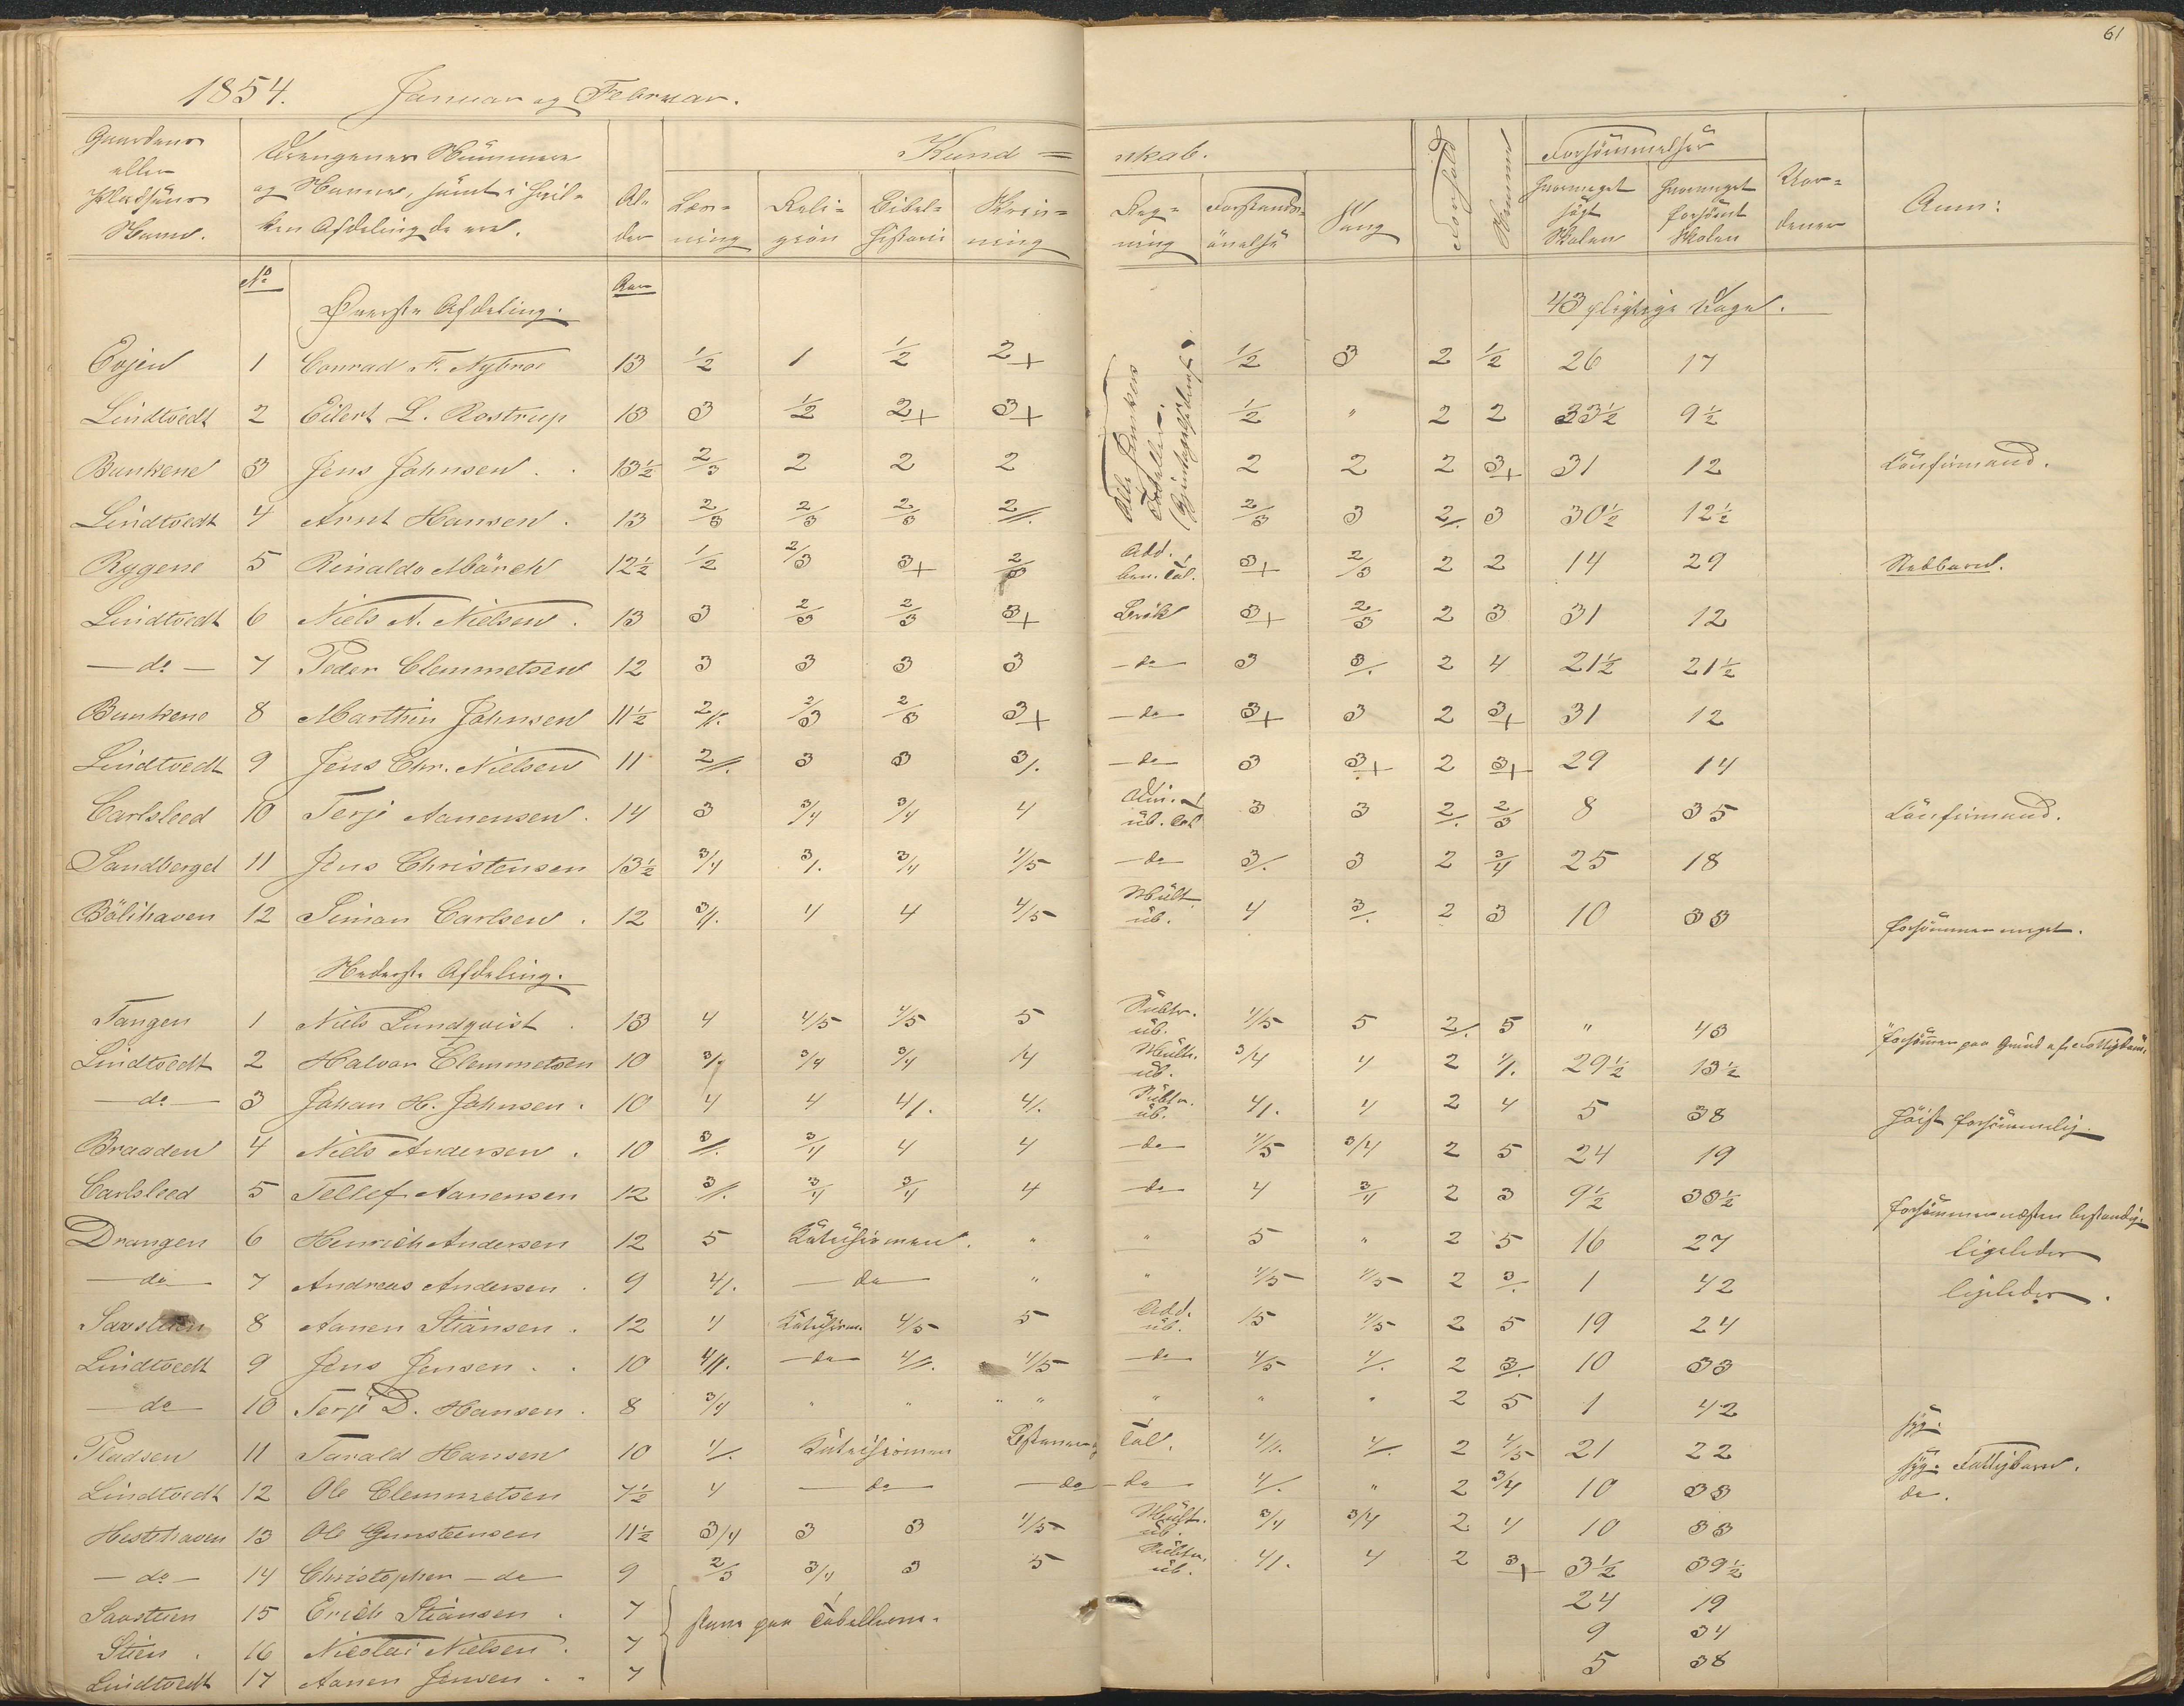 61
1854. Januar og Februar.
Gaardens eller Pladsens Navn. Drengenes Nummere og Navne, samt i hvilken Afdeling de ere. Alder Læsning Religion Bibelhistorie Skrivning Kundskab. Regning Forstandsøvelse Sang Forhold Fremmøde Forsømmelser hvormeget søgt Skolen hvormeget forsømt Skolen Anm:
No Øverste Afdeling. Aar 43 pligtige Dage.
Evjen 1 Conrad F. Nybroe 13 1/2 1 1/2 2+ 1/2 3 2 1/2 26 17
Lindtvedt 2 Eilert L. Rostrup 13 3 1/2 2+ 3+ 1/2 " 2 2 33½ 9½
Bunkene 3 Jens Johnsen. 13½ 2/3 2 2 2 2 2 2 3+ 31 12 Confirmand.
Lindtvedt 4 Arnt Hansen. 13 2/3 2/3 2/3 2//. 2/3 3 2/. 3 30½ 12½
Rygene 5 Rinaldo Mörch 12½ 1/2 2/3 3+ 2/3 Add. ben. Tal. 3+ 2/3 2 2 14 29
Lindtvedt 6 Niels N. Nielsen. 13 3 2/3 2/3 3+ Brök 3+ 2/3 2 3 31 12
do 7 Peder Clemmetsen 12 3 3 3 3 do 3 3/. 2 4 21½ 21½
Bunkene 8 Marthin Johnsen 11½ 2//. 2/3 2/3 3+ do 3+ 3 2 3+ 31 12
Lindtvedt 9 Jens Chr. Nielsen 11 2//. 3 3 3/. do 3 3+ 2 3+ 29 14
Carlsleed 10 Terje Aanensen. 14 3 3/4 3/4 4 3 3 2/. 2/3 8 35 Confirmand.
Sandberget 11 Jens Christensen 13½ 3/4 3/. 3/4 4/5 do 3/. 3 2 3/4 25 18
Bölihaven 12 Simon Carlsen. 12 3//. 4 4 4/5 Mult. üb. 4 3/. 2 3 10 33 forsømmer meget.
Nederste Afdeling.
Tangen 1 Niels Lundqvist. 13 4 4/5 4/5 5 Subtr. üb. 4/5 5 2/. 5 " 43 forsømmer paa Grund af
Lindtvedt 2 Halvor Clemmetsen 10 3/. 3/4 3/4 4 Mult. üb. 3/4 4 2 4/. 29½ 13½
do 3 Johan H. Johnsen. 10 4 4 4/. 4/. Subtr. üb. 4/. 4 2 4 5 38 høist forsømmelig.
Braaden 4 Niels Andersen. 10 3//. 3/4 4 4 do 4/5 3/4 2 5 24 19
Carlsleed 5 Tellef Aanensen 12 3//. 3/4 3/4 4 do 4 3/4 2 3 9½ 33½ forsømmer næsten bestandig
Drangen 6 Henrich Andersen 12 5 Katechismen. " " 5 " 2 5 16 27 ligeledes
do 7 Andreas Andersen. 9 4/. do " " 4/5 4/5 2 3/. 1 42 ligeledes.
Saasteien 8 Aanen Stiansen. 12 4 Katechism. 4/5 5 Add. üb. 4/5 2 5 19 24
Lindtvedt 9 Jens Jensen. 10 4//. do 4//. 4/5 do 4/5 4/. 2 3/. 10 33
do 10 Terje D. Hansen. 8 3/4 " " " " " " 2 5 1 42 syg.
Pladsen 11 Tarald Hansen 10 4/. Katechismen Tal. 4//. 4/. 2 4/5 21 22 syg. Fattigbarn.
Lindtvedt 12 Ole Clemmetsen 7½ 4 do do do 4/. " 2 3/4 10 33 do.
Hestehaven 13 Ole Gunsteensen 11½ 3/4 3 3 4/5 Mult. üb. 3/4 3/4 2 4 10 33
do 14 Christopher do 9 2/3 3/4 3 5 Subtr. üb. 4/. 4 2 3+ 3½ 39½
Saasteien 15 Erich Stiansen. 7 staae paa Tabellerne. 24 19
Stien. 16 Nicolai Nielsen. 7 9 34
Lindtvedt 17 Aanen Jensen. 7 5 38